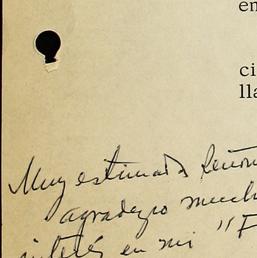 en
ci
lla
Muy estimado Señor
agradezco mucho
interés en mi "F